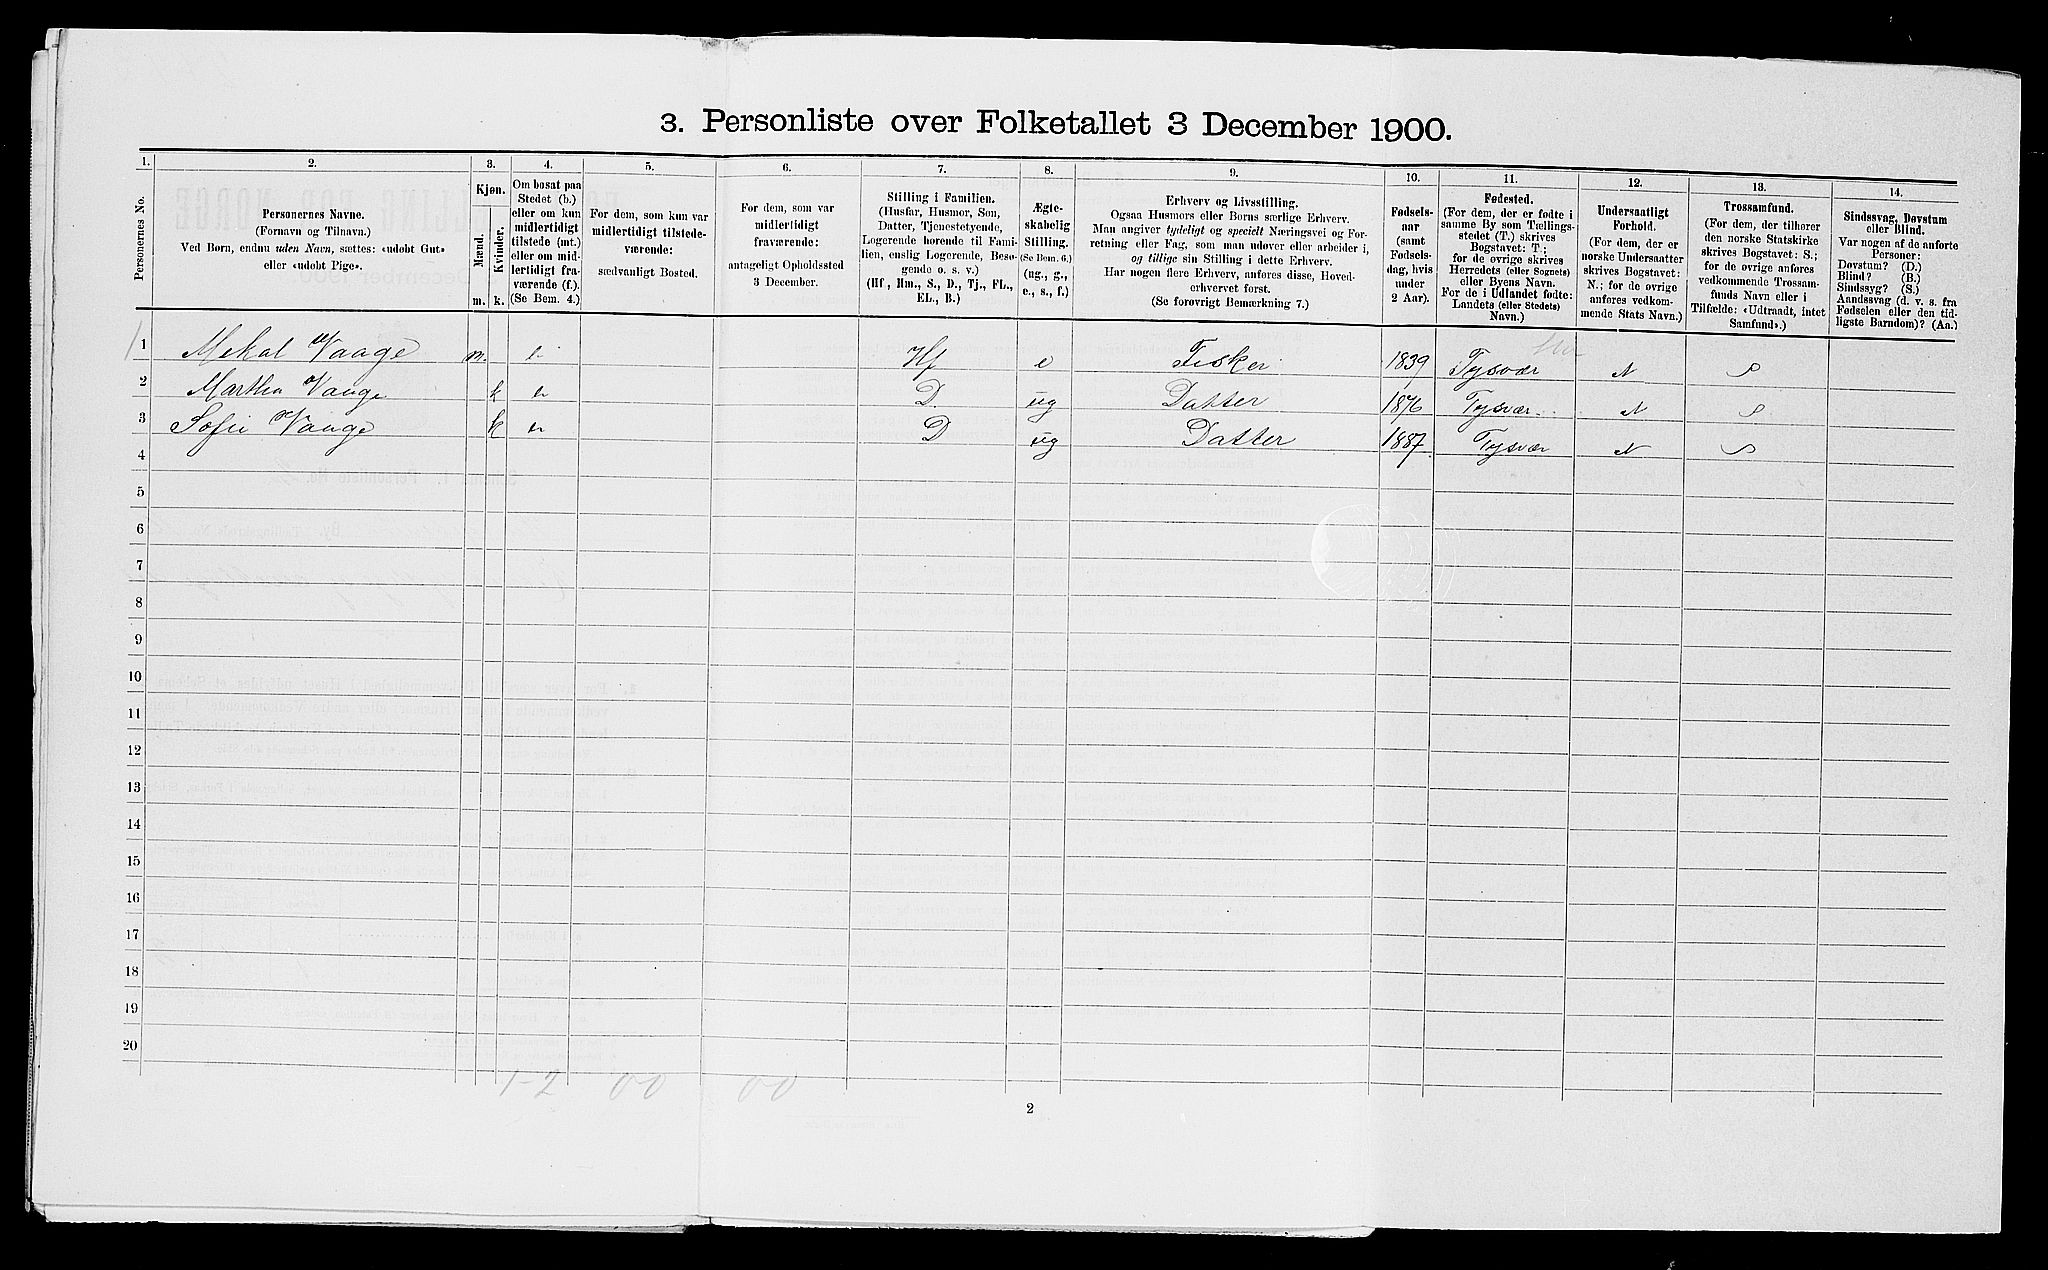 3. Personliste over Folketallet 3 December 1900.
1. 2. 3. 4. 5. 6. 7. 8. 9. 10. 11. 12. 13. 14.
Personernes No.
Personernes Navne.
(Fornavn og Tilnavn.)
Ved Børn, endnu uden Navn, sættes: «udøbt Gut»
eller «udøbt Pige».
Kjøn.
Mænd.
Kvinder.
m. k.
Om bosat paa
Stedet (b.)
eller om kun
midlertidigt
tilstede (mt.)
eller om mid-
lertidigt fra-
værende (f.).
(Se Bem. 4.)
For dem, som kun var
midlertidigt tilstede-
værende:
sædvanligt Bosted.
For dem, som var
midlertidigt
fraværende:
antageligt Opholdssted
3 December.
Stilling i Familien.
(Husfar, Husmor, Søn,
Datter, Tjenestetyende,
Logerende hørende til Fami-
lien, enslig Logerende, Besø-
gende o. s. v.)
(Hf., Hm., S., D., Tj., FL.,
EL., B.)
Ægte-
skabelig
Stilling.
(Se Bem. 6.)
(ug., g.,
e., s., f.)
Erhverv og Livsstilling.
Ogsaa Husmors eller Børns særlige Erhverv.
Man angiver tydeligt og specielt Næringsvei og For-
retning eller Fag, som man udøver eller arbeider i,
og tillige sin Stilling i dette Erhverv.
Har nogen flere Erhverv, anføres disse, Hoved-
erhvervet først.
(Se forøvrigt Bemærkning 7.)
Fødsels-
aar
(samt
Fødsels-
dag, hvis
under
2 Aar).
Fødested.
(For dem, der er fødte i
samme By som Tællings-
stedet (T.) skrives
Bogstavet: T.;
for de øvrige skrives
Herredets (eller Sognets)
eller Byens Navn.
For de i Udlandet fødte:
Landets (eller Stedets)
Navn.)
Undersaatligt
Forhold.
(For dem, der er
norske Undersaatter
skrives Bogstavet:
N.; for de øvrige
anføres vedkom-
mende Stats Navn.)
Trossamfund.
(For dem, der tilhører
den norske Statskirke
skrives Bogstavet: S.;
for de øvrige anføres
vedkommende Trossam-
funds Navn eller i
Tilfælde: «Udtraadt, intet
Samfund».)
Sindssvag, Døvstum
eller Blind.
Var nogen af de anførte
Personer:
Døvstum? (D.)
Blind? (B.)
Sindssyg? (S.)
Aandssvag (d. v. s. fra
Fødselen eller den tid-
ligste Barndom)? (Aa.)
1 Mekal Vaage m. Hf e Fisker 1839 Tysvær N S
2 Martha Vaage k D. ug Datter 1876 Tysvær N S
3 Sofie Vaage k D ug Datter 1887 Tysvær N S
4
5
6
7
8
9
10
11
12
13
14
15
16
17
18
19
20
1-2 00 00
2